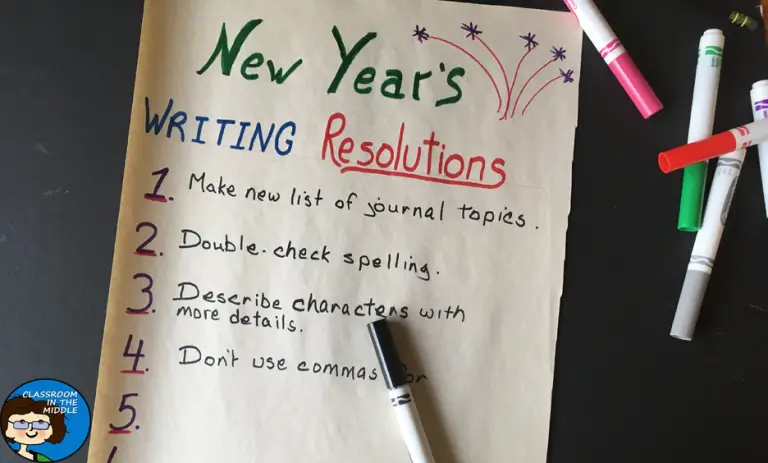 New Year's
WRITING Resolutions
1. Make new list of journal topics.
2. Double-check spelling.
3. Describe characters with
more details.
4. Don't use commas for
5.
CLASSROOM
IN THE
MIDDLE